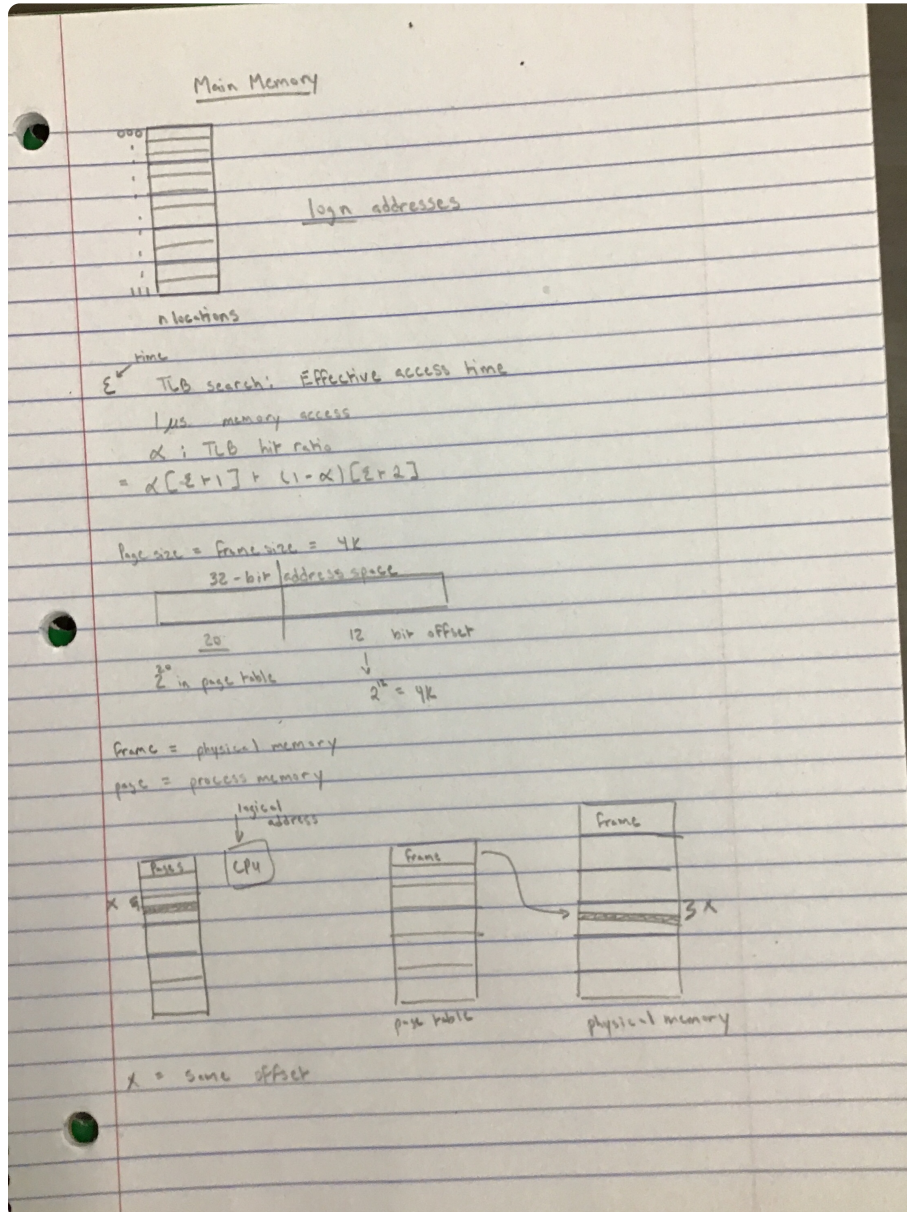 Main Memory
000
logn addresses
111
n locations
time
Ɛ TLB search: Effective access time
1 μs. memory access
α : TLB hit ratio
= α[Ɛ+1] + (1-α)[Ɛ+2]
Page size = Frame size = 4K
32-bit address space
20 12 bit offset
2^20 in page table
2^12 = 4K
frame = physical memory
page = process memory
logical address
Pages CPU Frame Frame
x x
page table physical memory
x = same offset